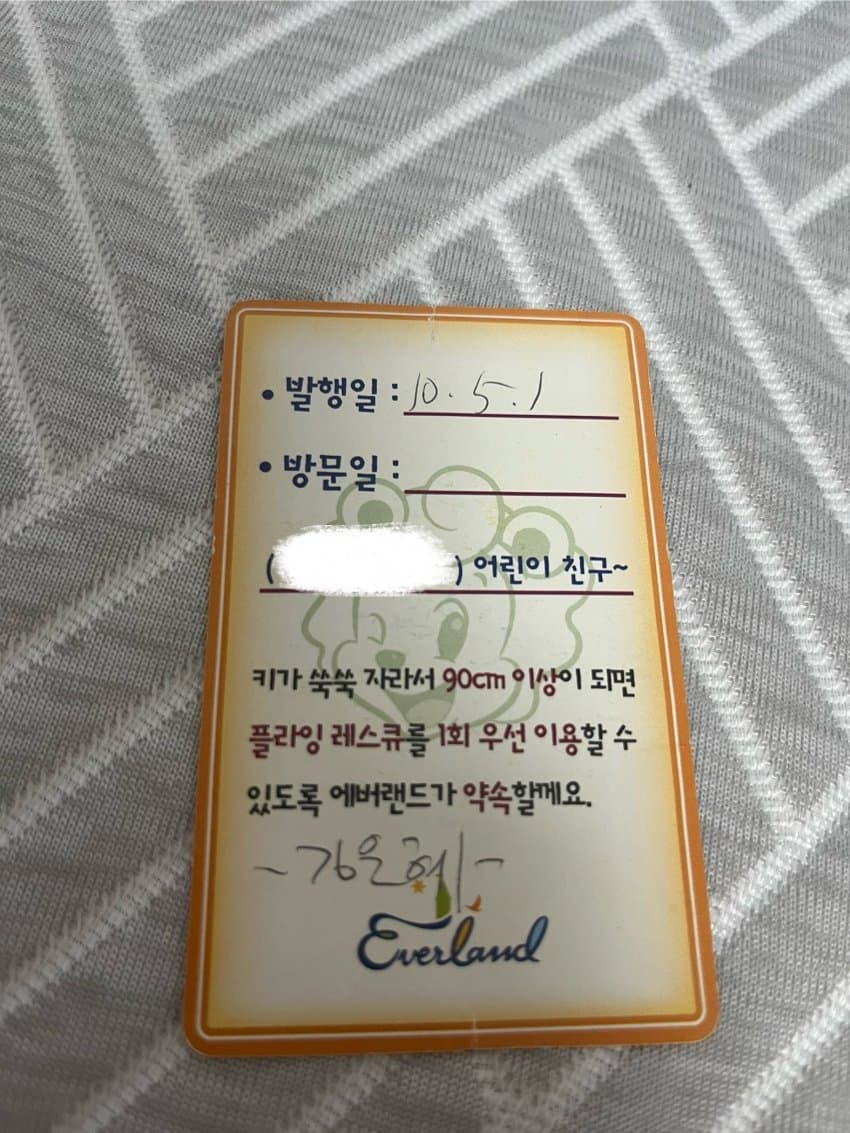 • 발행일 : 10. 5. 1
• 방문일 :
( ) 어린이 친구~
키가 쑥쑥 자라서 90cm 이상이 되면
플라잉 레스큐를 1회 우선 이용할 수
있도록 에버랜드가 약속할께요.
Everland